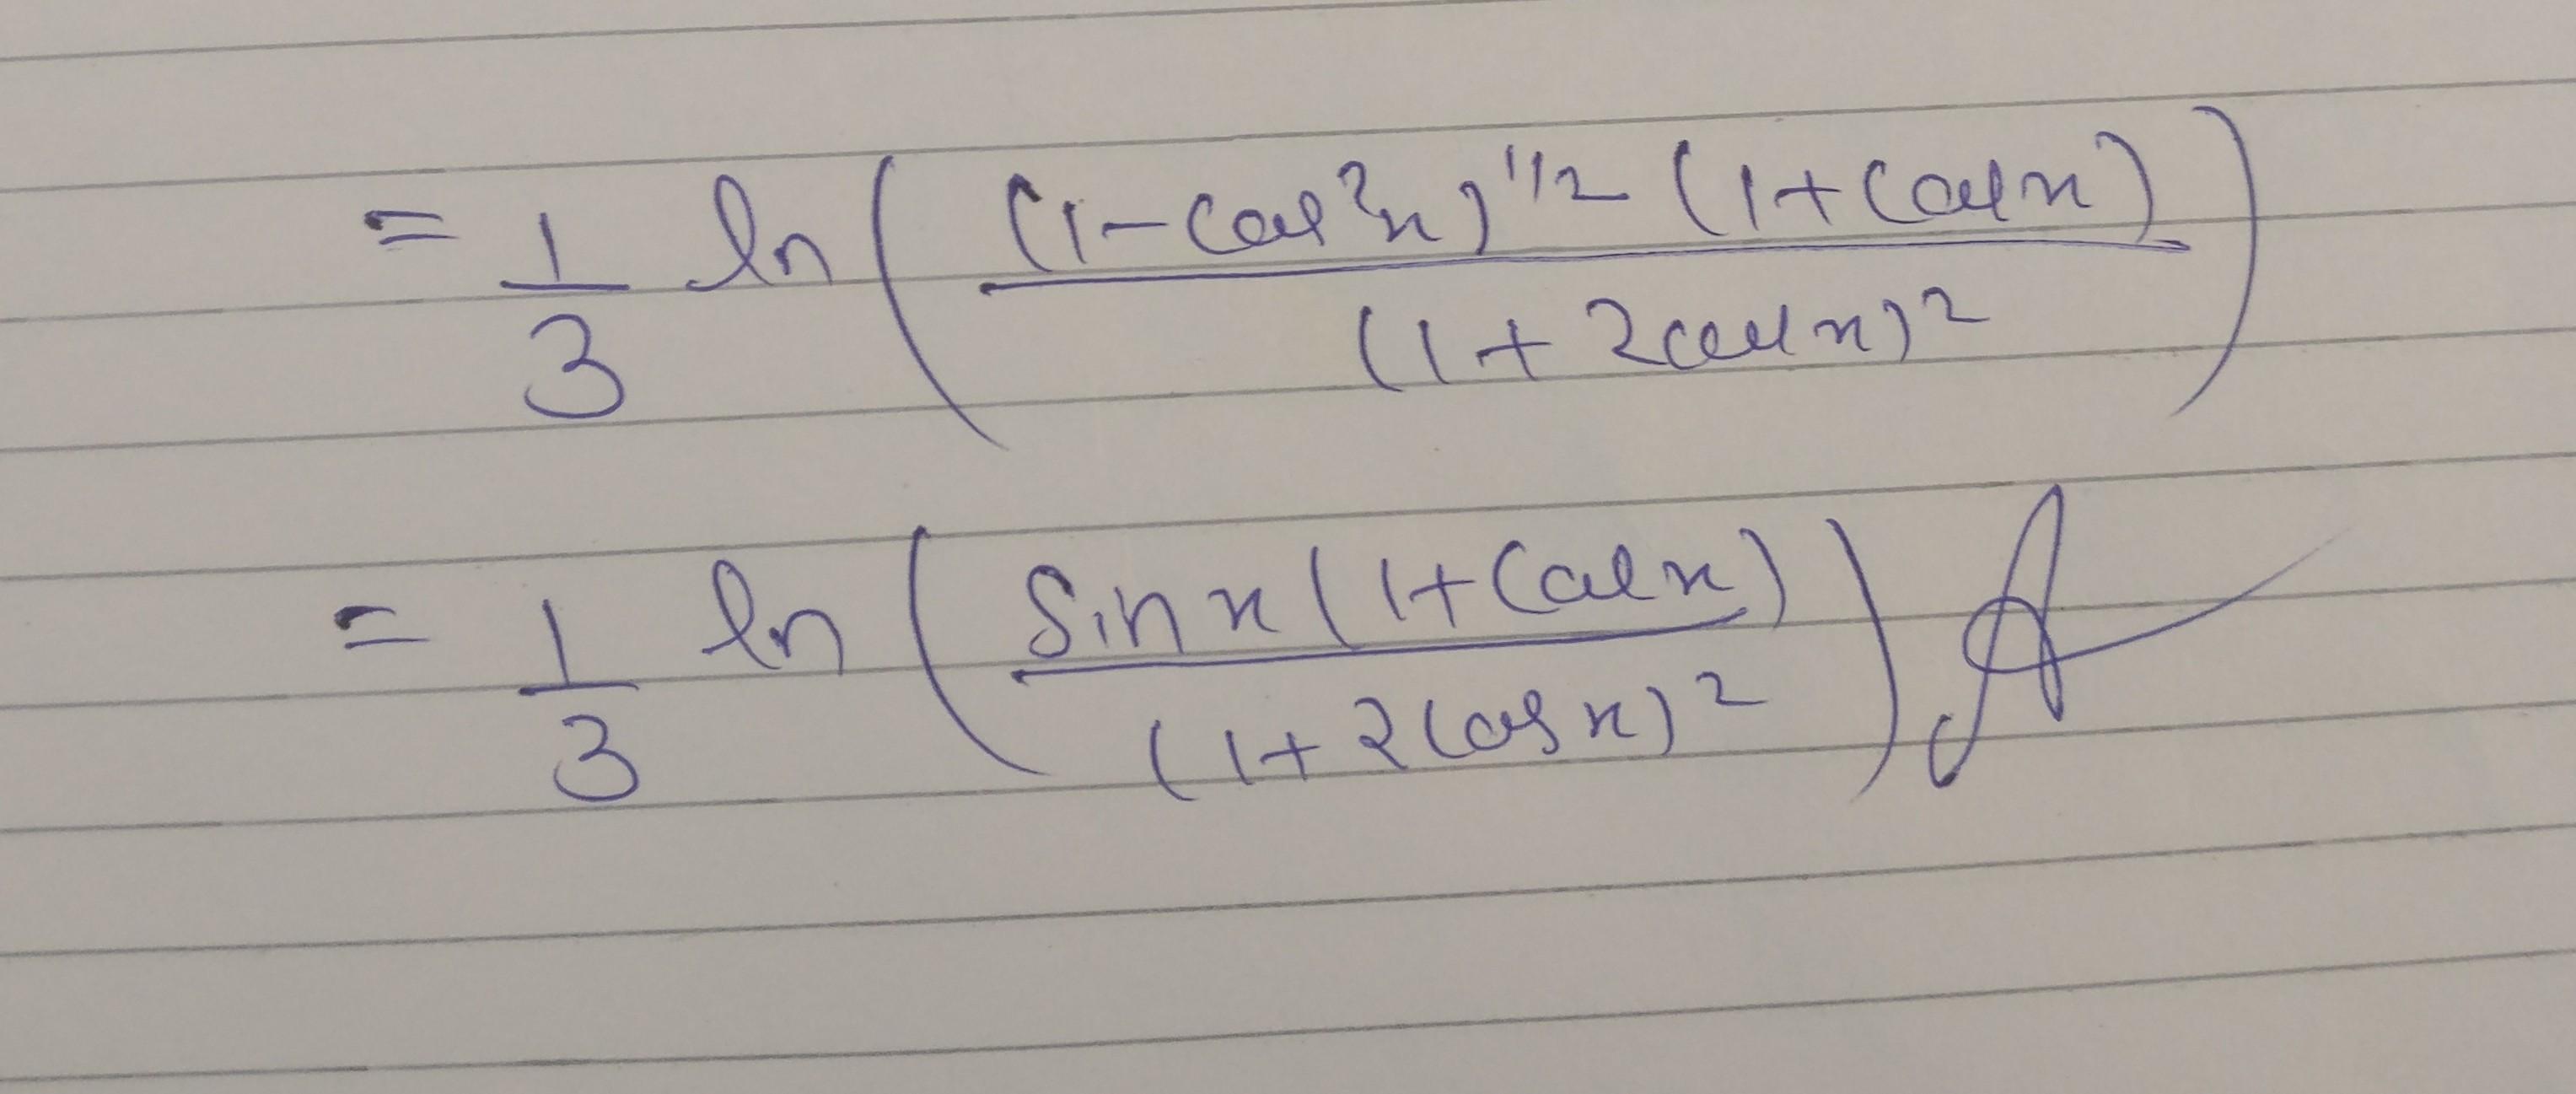 = 1/3 ln ( (1-cos²x)^1/2 (1+cosx) / (1+2cosx)² )
= 1/3 ln ( sinx(1+cosx) / (1+2cosx)² )